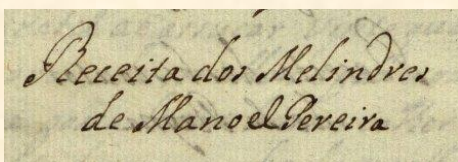 Receita dos Melindres
de Manoel Pereira